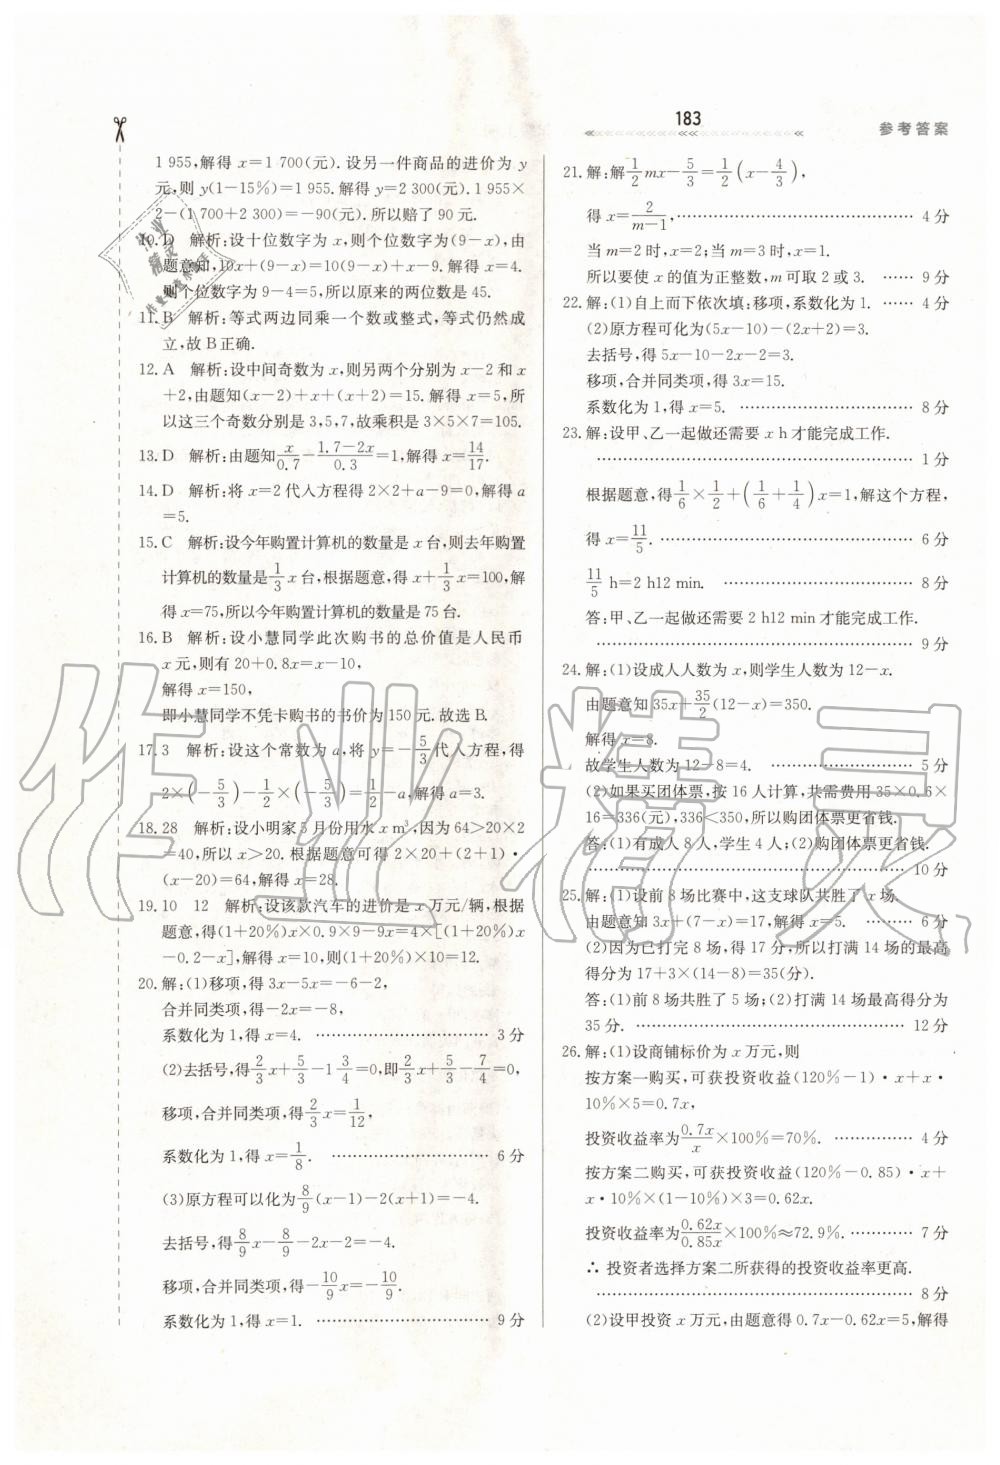 183
参考答案
1 955,解得 x=1 700(元). 设另一件商品的进价为 y
元,则 y(1-15%)=1 955. 解得 y=2 300(元). 1 955×
2-(1 700+2 300)=-90(元). 所以赔了 90 元.
10. D 解析:设十位数字为 x,则个位数字为(9-x),由
题意知,10x+(9-x)=9(9-x)+x-9. 解得 x=4.
则个位数字为 9-4=5,所以原来的两位数是 45.
11. B 解析:等式两边同乘一个数或整式,等式仍然成
立,故 B 正确.
12. A 解析:设中间奇数为 x,则另两个分别为 x-2 和 x
+2,由题知(x-2)+x+(x+2)=15. 解得 x=5,所
以这三个奇数分别是 3,5,7,故乘积是 3×5×7=105.
13. D 解析:由题知 x/0.7 - (1.7-2x)/0.3 =1,解得 x= 14/17.
14. D 解析:将 x=2 代入方程得 2×2+a-9=0,解得 a
=5.
15. C 解析:设今年购置计算机的数量是 x 台,则去年购置
计算机的数量是 1/3 x 台,根据题意,得 x+ 1/3 x=100,解
得 x=75,所以今年购置计算机的数量是 75 台.
16. B 解析:设小慧同学此次购书的总价值是人民币
x 元,则有 20+0.8x=x-10,
解得 x=150,
即小慧同学不凭卡购书的书价为 150 元. 故选 B.
17. 3 解析:设这个常数为 a,将 y=- 5/3 代入方程,得
2×(- 5/3)- 1/2 ×(- 5/3)= 1/2 -a,解得 a=3.
18. 28 解析:设小明家 5 月份用水 x m³,因为 64>20×2
=40,所以 x>20. 根据题意可得 2×20+(2+1)·
(x-20)=64,解得 x=28.
19. 10 12 解析:设该款汽车的进价是 x 万元/辆,根据
题意,得(1+20%)x×0.9×9-9x=4×[(1+20%)x
-0.2-x],解得 x=10,则(1+20%)×10=12.
20. 解:(1)移项,得 3x-5x=-6-2,
合并同类项,得-2x=-8,
系数化为 1,得 x=4. …………………………… 3 分
(2)去括号,得 2/3 x+ 5/3 -1 3/4 =0,即 2/3 x+ 5/3 - 7/4 =0,
移项,合并同类项,得 2/3 x= 1/12,
系数化为 1,得 x= 1/8. …………………………… 6 分
(3)原方程可以化为 8/9 (x-1)-2(x+1)=-4.
去括号,得 8/9 x- 8/9 -2x-2=-4.
移项,合并同类项,得- 10/9 x=- 10/9.
系数化为 1,得 x=1. …………………………… 9 分
21. 解:解 1/2 mx- 5/3 = 1/2 (x- 4/3),
得 x= 2/(m-1), …………………………… 4 分
当 m=2 时,x=2;当 m=3 时,x=1.
所以要使 x 的值为正整数,m 可取 2 或 3. …… 9 分
22. 解:(1)自上而下依次填:移项,系数化为 1. …… 4 分
(2)原方程可化为(5x-10)-(2x+2)=3.
去括号,得 5x-10-2x-2=3.
移项,合并同类项,得 3x=15.
系数化为 1,得 x=5. …………………………… 8 分
23. 解:设甲、乙一起做还需要 x h 才能完成工作.
…………………………… 1 分
根据题意,得 1/6 × 1/2 +( 1/6 + 1/4 )x=1,解这个方程,
得 x= 11/5. …………………………… 6 分
11/5 h=2 h12 min. …………………………… 8 分
答:甲、乙一起做还需要 2 h12 min 才能完成工作.
…………………………… 9 分
24. 解:(1)设成人人数为 x,则学生人数为 12-x.
由题意知 35x+ 35/2 (12-x)=350.
解得 x=8.
故学生人数为 12-8=4. …………………………… 5 分
(2)如果买团体票,按 16 人计算,共需费用 35×0.6×
16=336(元),336<350,所以购团体票更省钱.
答:(1)有成人 8 人,学生 4 人;(2)购团体票更省钱.
…………………………… 10 分
25. 解:(1)设前 8 场比赛中,这支球队共胜了 x 场.
由题意知 3x+(7-x)=17,解得 x=5. ……… 6 分
(2)因为已打完 8 场,得 17 分,所以打满 14 场的最高
得分为 17+3×(14-8)=35(分).
答:(1)前 8 场共胜了 5 场;(2)打满 14 场最高得分为
35 分. …………………………… 12 分
26. 解:(1)设商铺标价为 x 万元,则
按方案一购买,可获投资收益(120%-1)·x+x·
10%×5=0.7x,
投资收益率为 0.7x/x ×100%=70%. ………… 4 分
按方案二购买,可获投资收益(120%-0.85)·x+
x·10%×(1-10%)×3=0.62x.
投资收益率为 0.62x/0.85x ×100%≈72.9%. ……… 7 分
∴ 投资者选择方案二所获得的投资收益率更高.
…………………………… 8 分
(2)设甲投资 x 万元,由题意得 0.7x-0.62x=5,解得
作业精灵